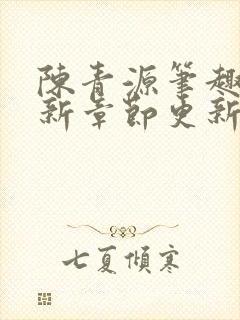 陳青源筆趣
新章節更新
七夏傾寒